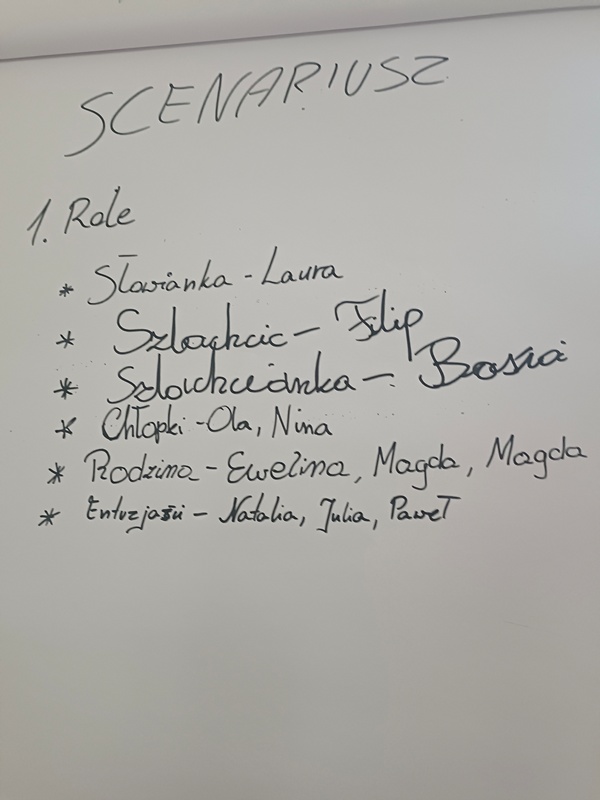 SCENARIUSZ
1. Role
* Słowianka - Laura
* Szlachcic - Filip
* Szlachcianka - Basia
* Chłopki - Ola, Nina
* Rodzina - Ewelina, Magda, Magda
* Entuzjaści - Natalia, Julia, Paweł